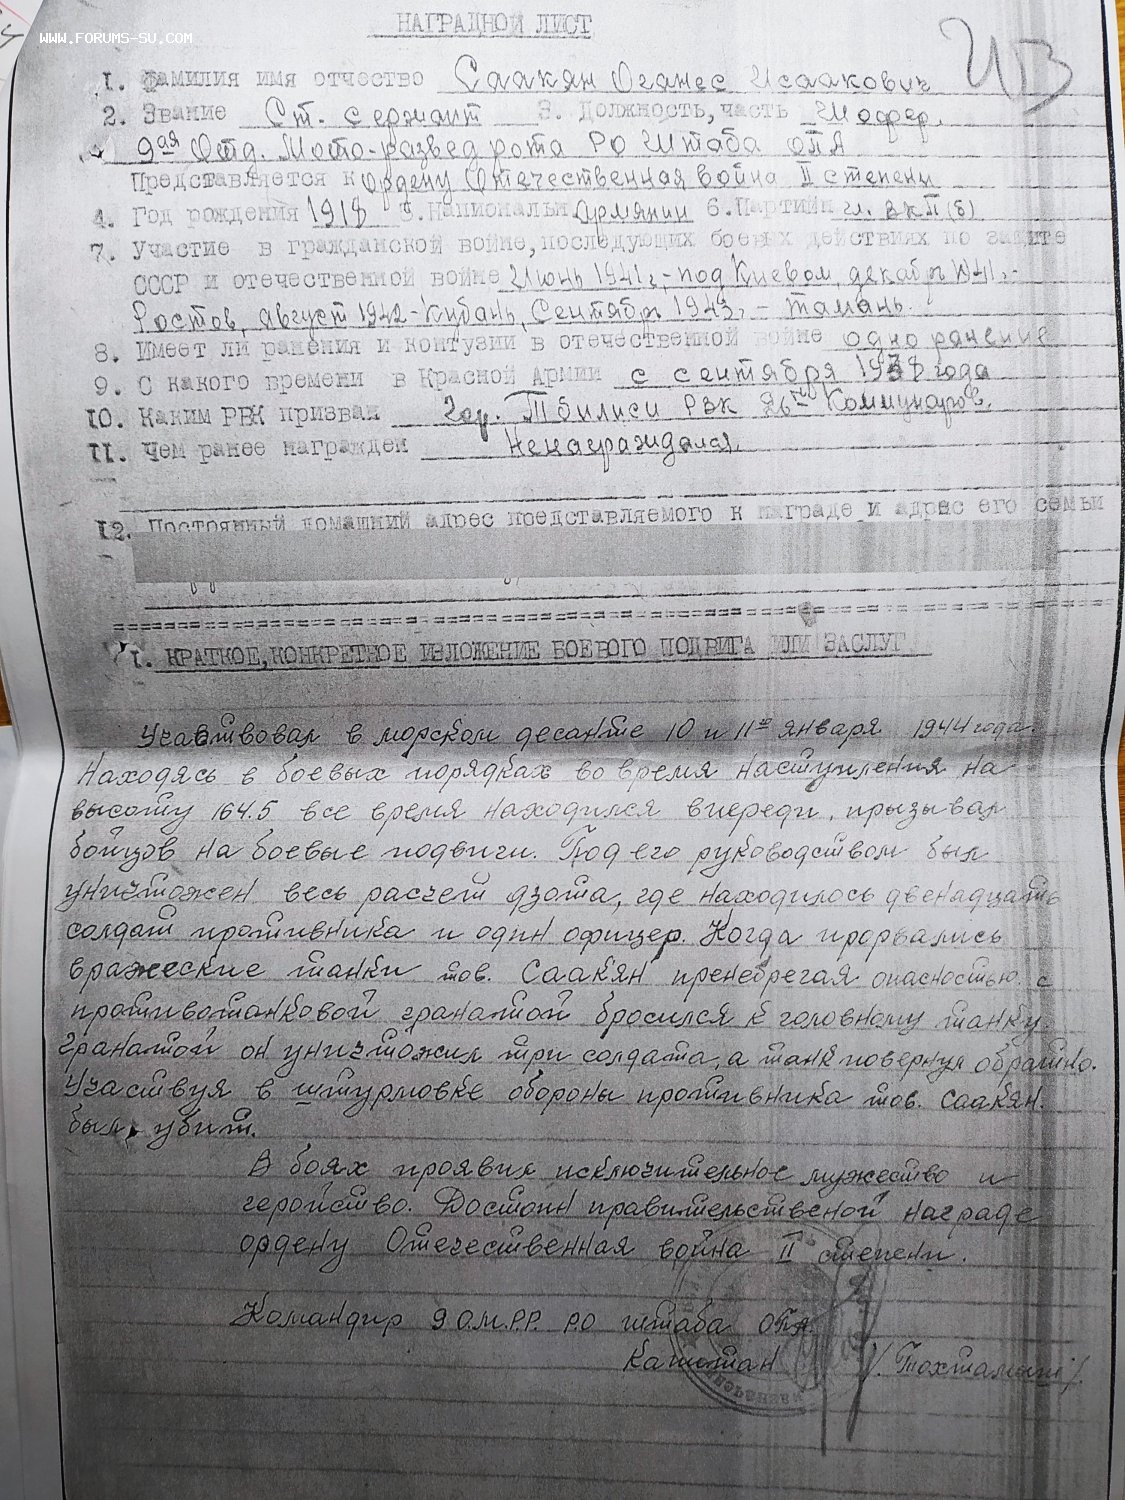 WWW.FORUMS-SU.COM
НАГРАДНОЙ ЛИСТ
ИВ
1. Фамилия имя отчество Саакян Оганес Исаакович
2. Звание Ст. сержант 3. Должность, часть Шофер,
9ая Отд. Мото-развед рота РО Штаба ОПА
Представляется к ордену Отечественная война II степени
4. Год рождения 1918 5. Националь Армянин 6. Партийн чл. ВКП(б)
7. Участие в гражданской войне, последующих боевых действиях по защите
СССР и отечественной войне Июнь 1941г.-под Киевом, декабрь 1941г.-
Ростов, август 1942-Кубань, Сентябрь 1943г.-Тамань.
8. Имеет ли ранения и контузии в отечественной войне одно ранение
9. С какого времени в Красной Армии с сентября 1938 года
10. Каким РВК призван гор. Тбилиси РВК 26ти Коммунаров.
11. Чем ранее награжден Ненаграждался
12. Постоянный домашний адрес представляемого к награде и адрес его семьи
1. КРАТКОЕ, КОНКРЕТНОЕ ИЗЛОЖЕНИЕ БОЕВОГО ПОДВИГА ИЛИ ЗАСЛУГ
Учавствовал в морском десанте 10 и 11го января 1944 года.
Находясь в боевых порядках во время наступления на
высоту 164.5 все время находился впереди, призывал
бойцов на боевые подвиги. Под его руководством был
уничтожен весь расчет дзота, где находилось двенадцать
солдат противника и один офицер. Когда прорвались
вражеские танки тов. Саакян пренебрегая опасностью с
противотанковой гранатой бросился к головному танку.
Гранатой он уничтожил три солдата, а танк повернул обратно.
Участвуя в штурмовке обороны противника тов. Саакян.
был убит.
В боях проявил исключительное мужество и
геройство. Достоин правительственой награде
ордену Отечественная война II степени.
Командир 9 О.М.Р.Р. РО штаба ОПА.
Капитан /Тохтамыш/.